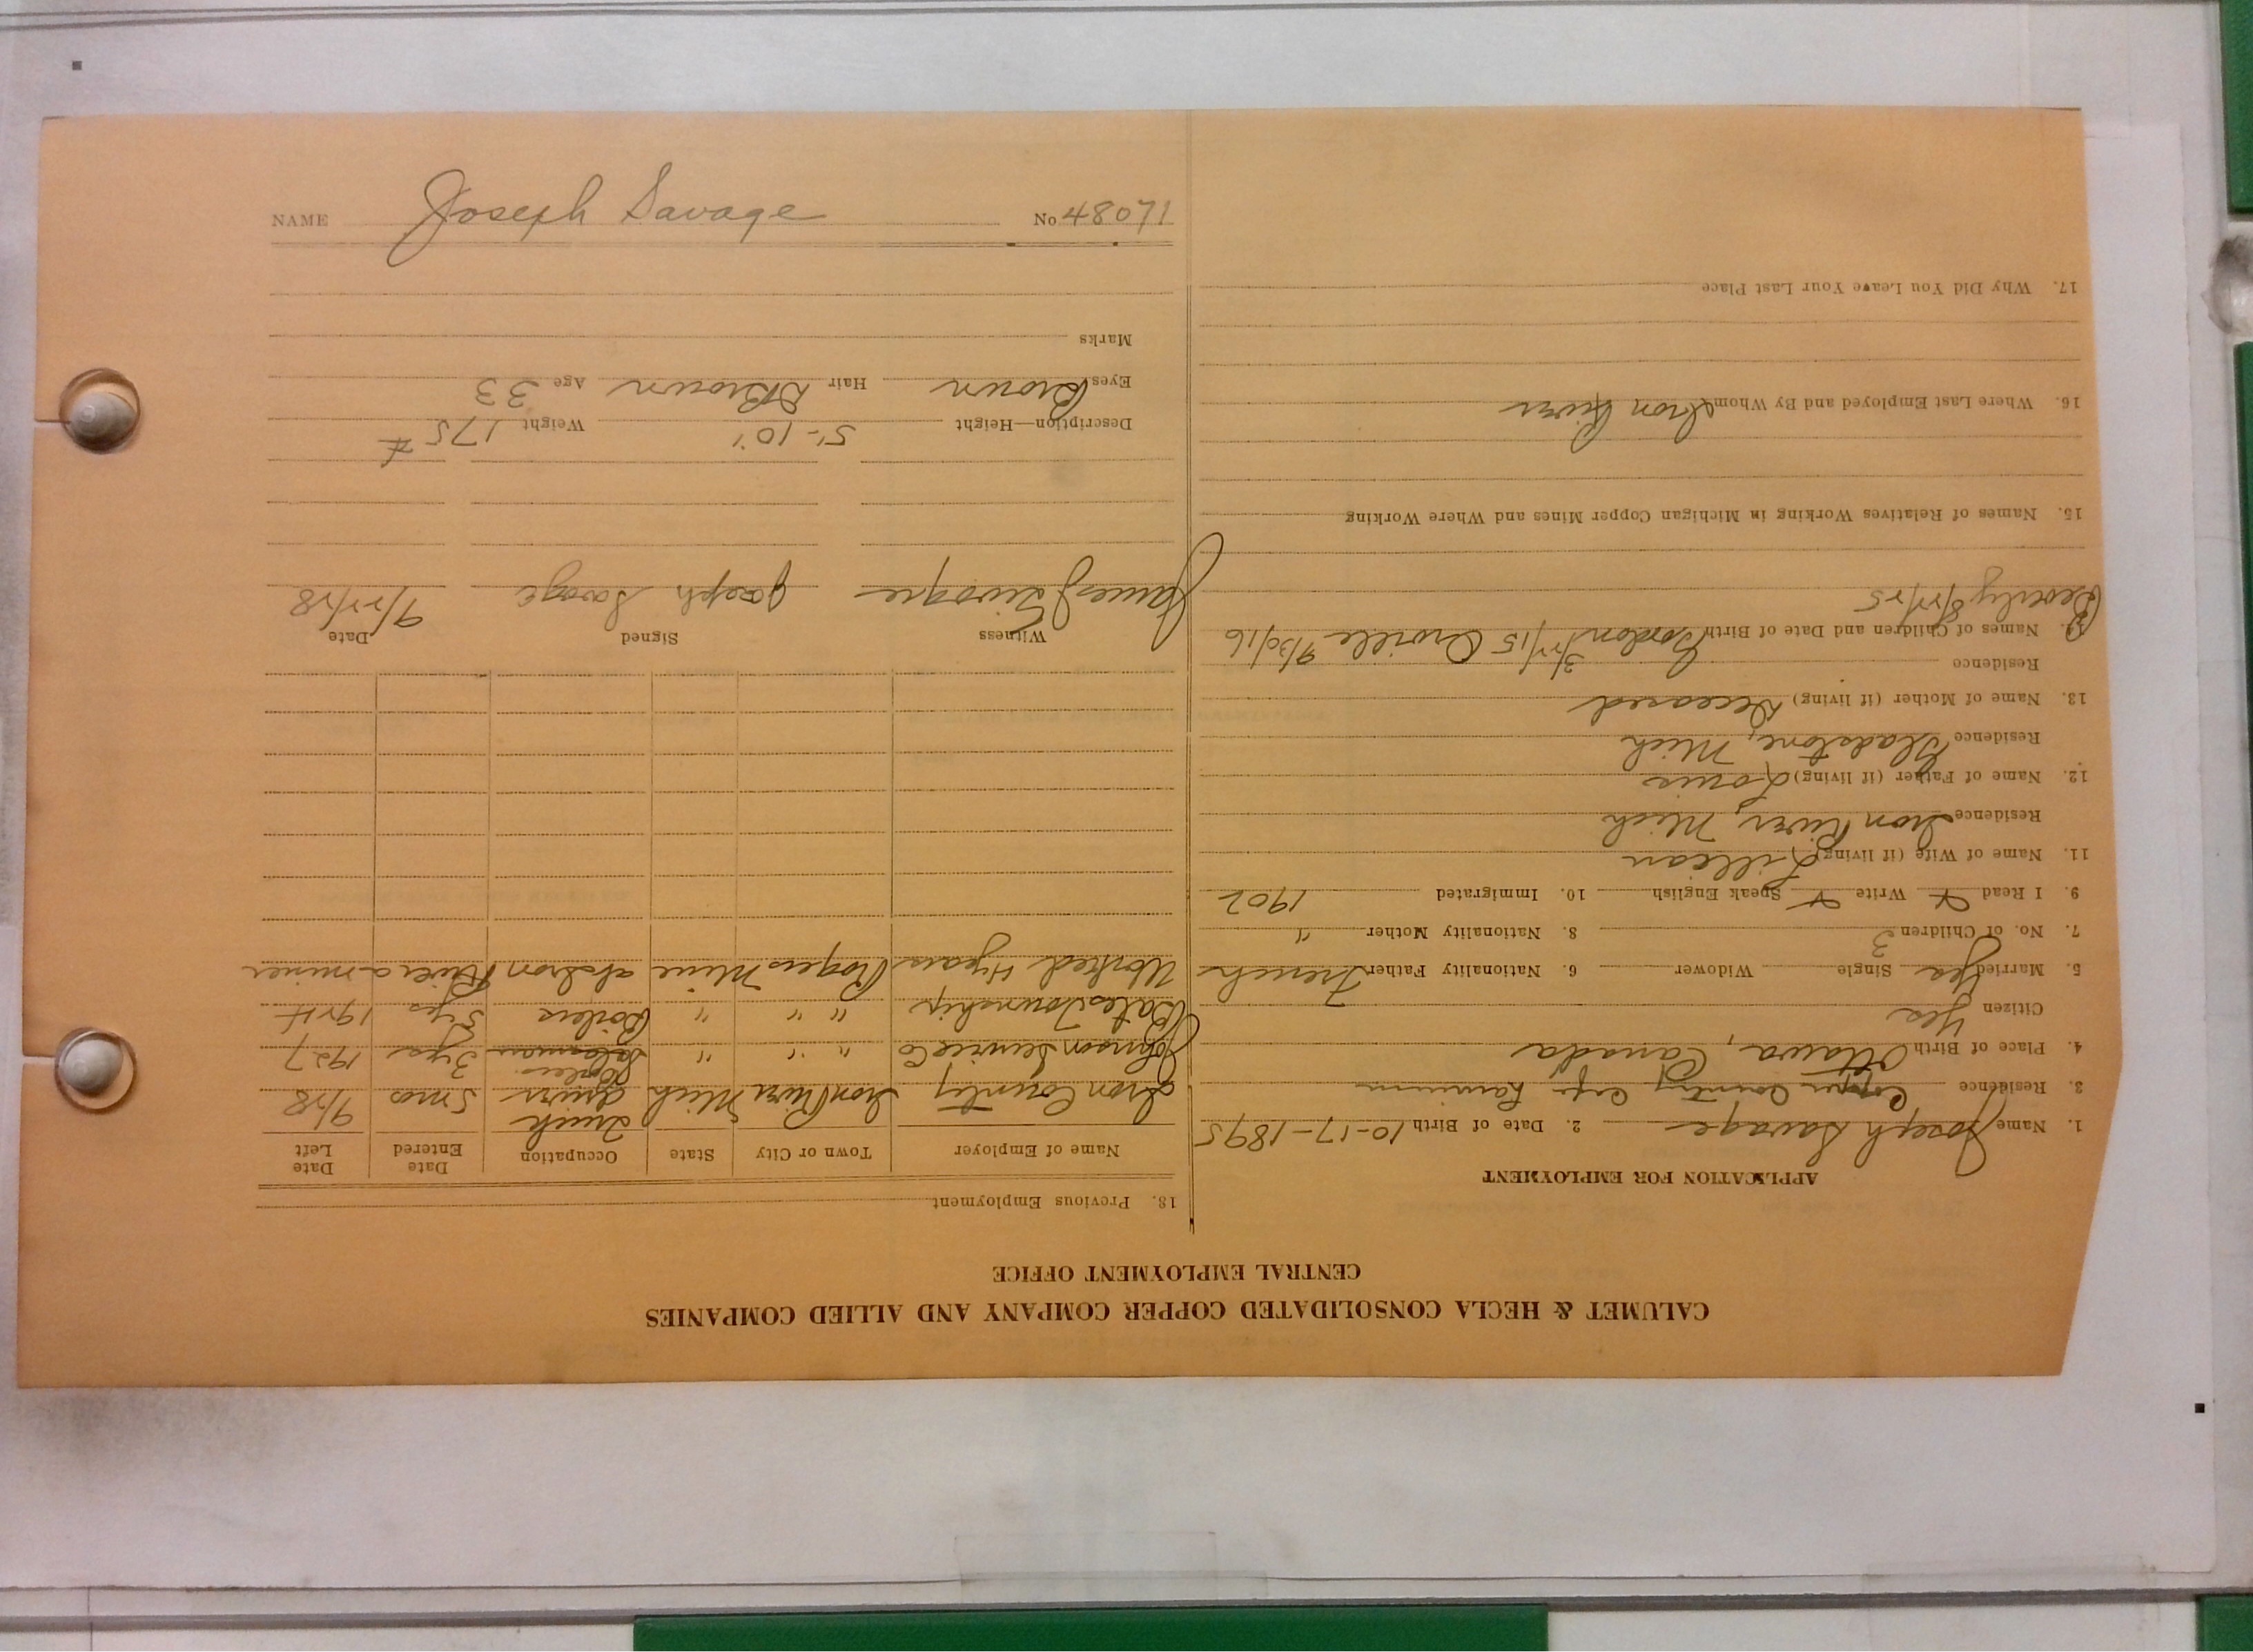 NAME Joseph Savage No 48071
CALUMET & HECLA CONSOLIDATED COPPER COMPANY AND ALLIED COMPANIES
CENTRAL EMPLOYMENT OFFICE
APPLICATION FOR EMPLOYMENT
1. Name Joseph Savage 2. Date of Birth 10-17-1895
3. Residence Copper Country
4. Place of Birth Ottawa, Canada
Citizen Yes
5. Married Yes Single Widower 6. Nationality Father French
7. No. of Children 3 8. Nationality Mother "
9. I Read Write Speak English 10. Immigrated 1902
11. Name of Wife (if living) Lillian
Residence Iron River, Mich
12. Name of Father (if living) Louis
Residence Gladstone, Mich
13. Name of Mother (if living) Deceased
Residence
Names of Children and Date of Birth Gordon 3/22/15 Orville 9/30/16
Beverly 8/22/25
15. Names of Relatives Working in Michigan Copper Mines and Where Working
16. Where Last Employed and By Whom Iron River
17. Why Did You Leave Your Last Place
18. Previous Employment
Name of Employer Town or City State Occupation Date Entered Date Left
Iron County Iron River Mich Truck driver 5 mos 9/28
Johnson Service Co " " " Salesman 3 yrs 1927
Bates Township " " " Boilers yrs 1924
Worked 4 years Rogers Mine at Iron River a miner
Witness Signed Date
James Joseph Savage 9/22/28
Description—Height 5'-10" Weight 175 #
Eyes Brown Hair D Brown Age 33
Marks